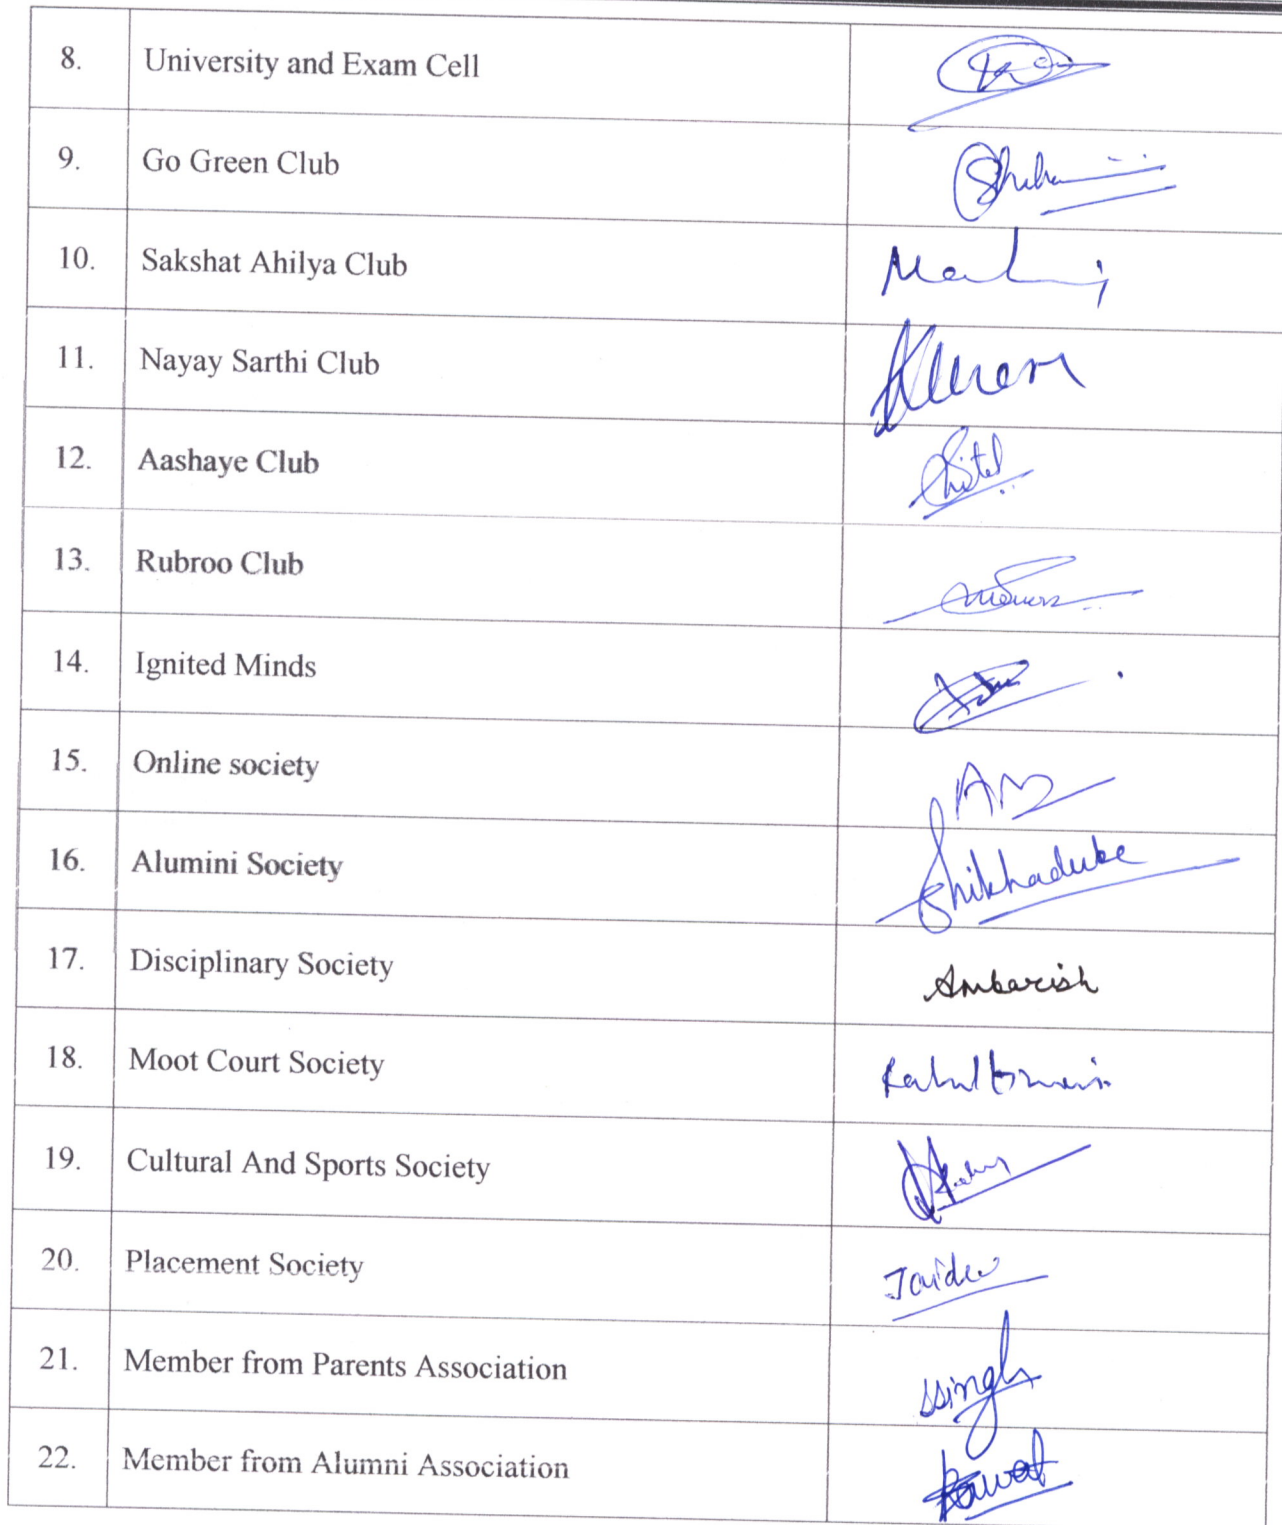 8. University and Exam Cell
9. Go Green Club
10. Sakshat Ahilya Club
11. Nayay Sarthi Club
12. Aashaye Club
13. Rubroo Club
14. Ignited Minds
15. Online society
16. Alumini Society Shikhadube
17. Disciplinary Society Ambarish
18. Moot Court Society
19. Cultural And Sports Society
20. Placement Society
21. Member from Parents Association SSingh
22. Member from Alumni Association